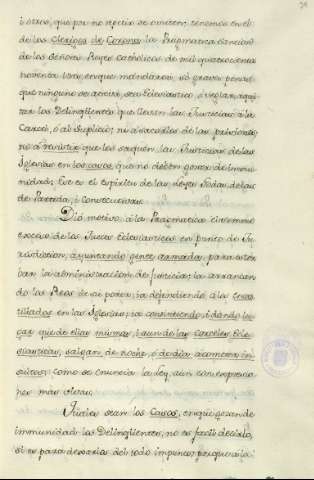 i otros, que por no repetir se omiten; tenemos en el
de los Clerigos de Corona la Pragmatica Sancion
de los Señores Reyes catholicos de mil quatrocientos
noventa i dos, en que mandaron, só graves penas
que ninguno se atreva, sea Eclesiastico, ó seglar, à qui
tar los Delinquentes que lleven las Justicias á la
Carcel, ó al suplicio; ni á sacarlos de las prisiones,
no á resistir que los saquen las Justicias de las
Iglesias en los casos que no deben gozar de Immu
nidad; Este es el espiritu de las Leyes todas de las
de Partida, i consecutivas.
Dió motivo à la Pragmatica el enorme
exceso de los Jueces Eclesiasticos en punto de Ju
risdicion, ayuntando gente armada, para estor
bar la administracion de justicia; ia arrancan
do los Reos de su poder, ia defendiendo á los
en las Iglesias, ia consintiendo, i dando lu
gar que de ellas mismas, i aun de las carceles Ecle
siasticas, salgan de noche, ó de dia à cometer in
sultos; como se enuncia la Ley, aun con expresio
nes más vivas.
Quales sean los Casos, en que gozan de
immunidad los Delinquentes, no es facil decirlo,
si es para dexarlos del todo impunes, porque